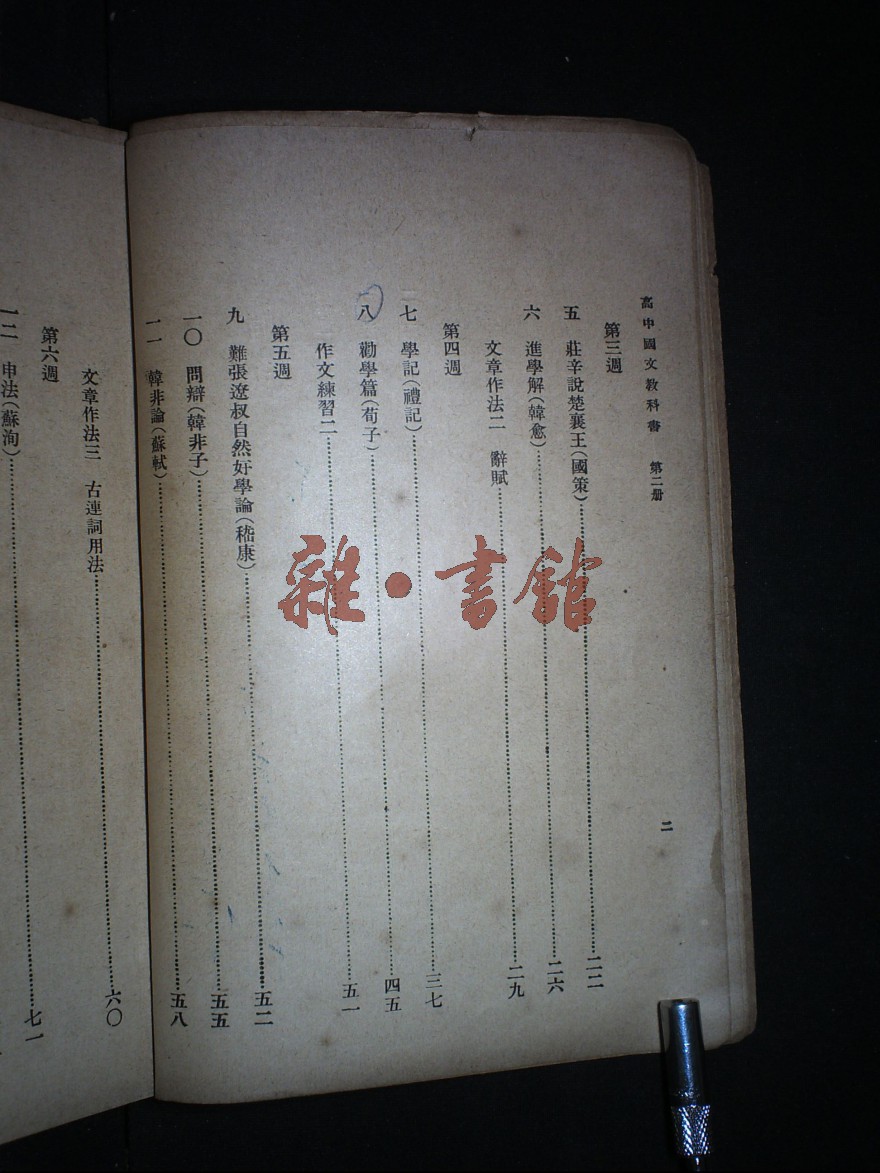 高中國文教科書　第二册
二
第三週
五　莊辛說楚襄王(國策)……二二
六　進學解(韓愈)……二六
文章作法二　辭賦……二九
第四週
七　學記(禮記)……三七
八　勸學篇(荀子)……四五
作文練習二……五一
第五週
九　難張遼叔自然好學論(嵇康)……五二
一〇　問辯(韓非子)……五五
一一　韓非論(蘇軾)……五八
文章作法三　古連詞用法……六〇
第六週
一二　申法(蘇洵)……七一
雜·書館